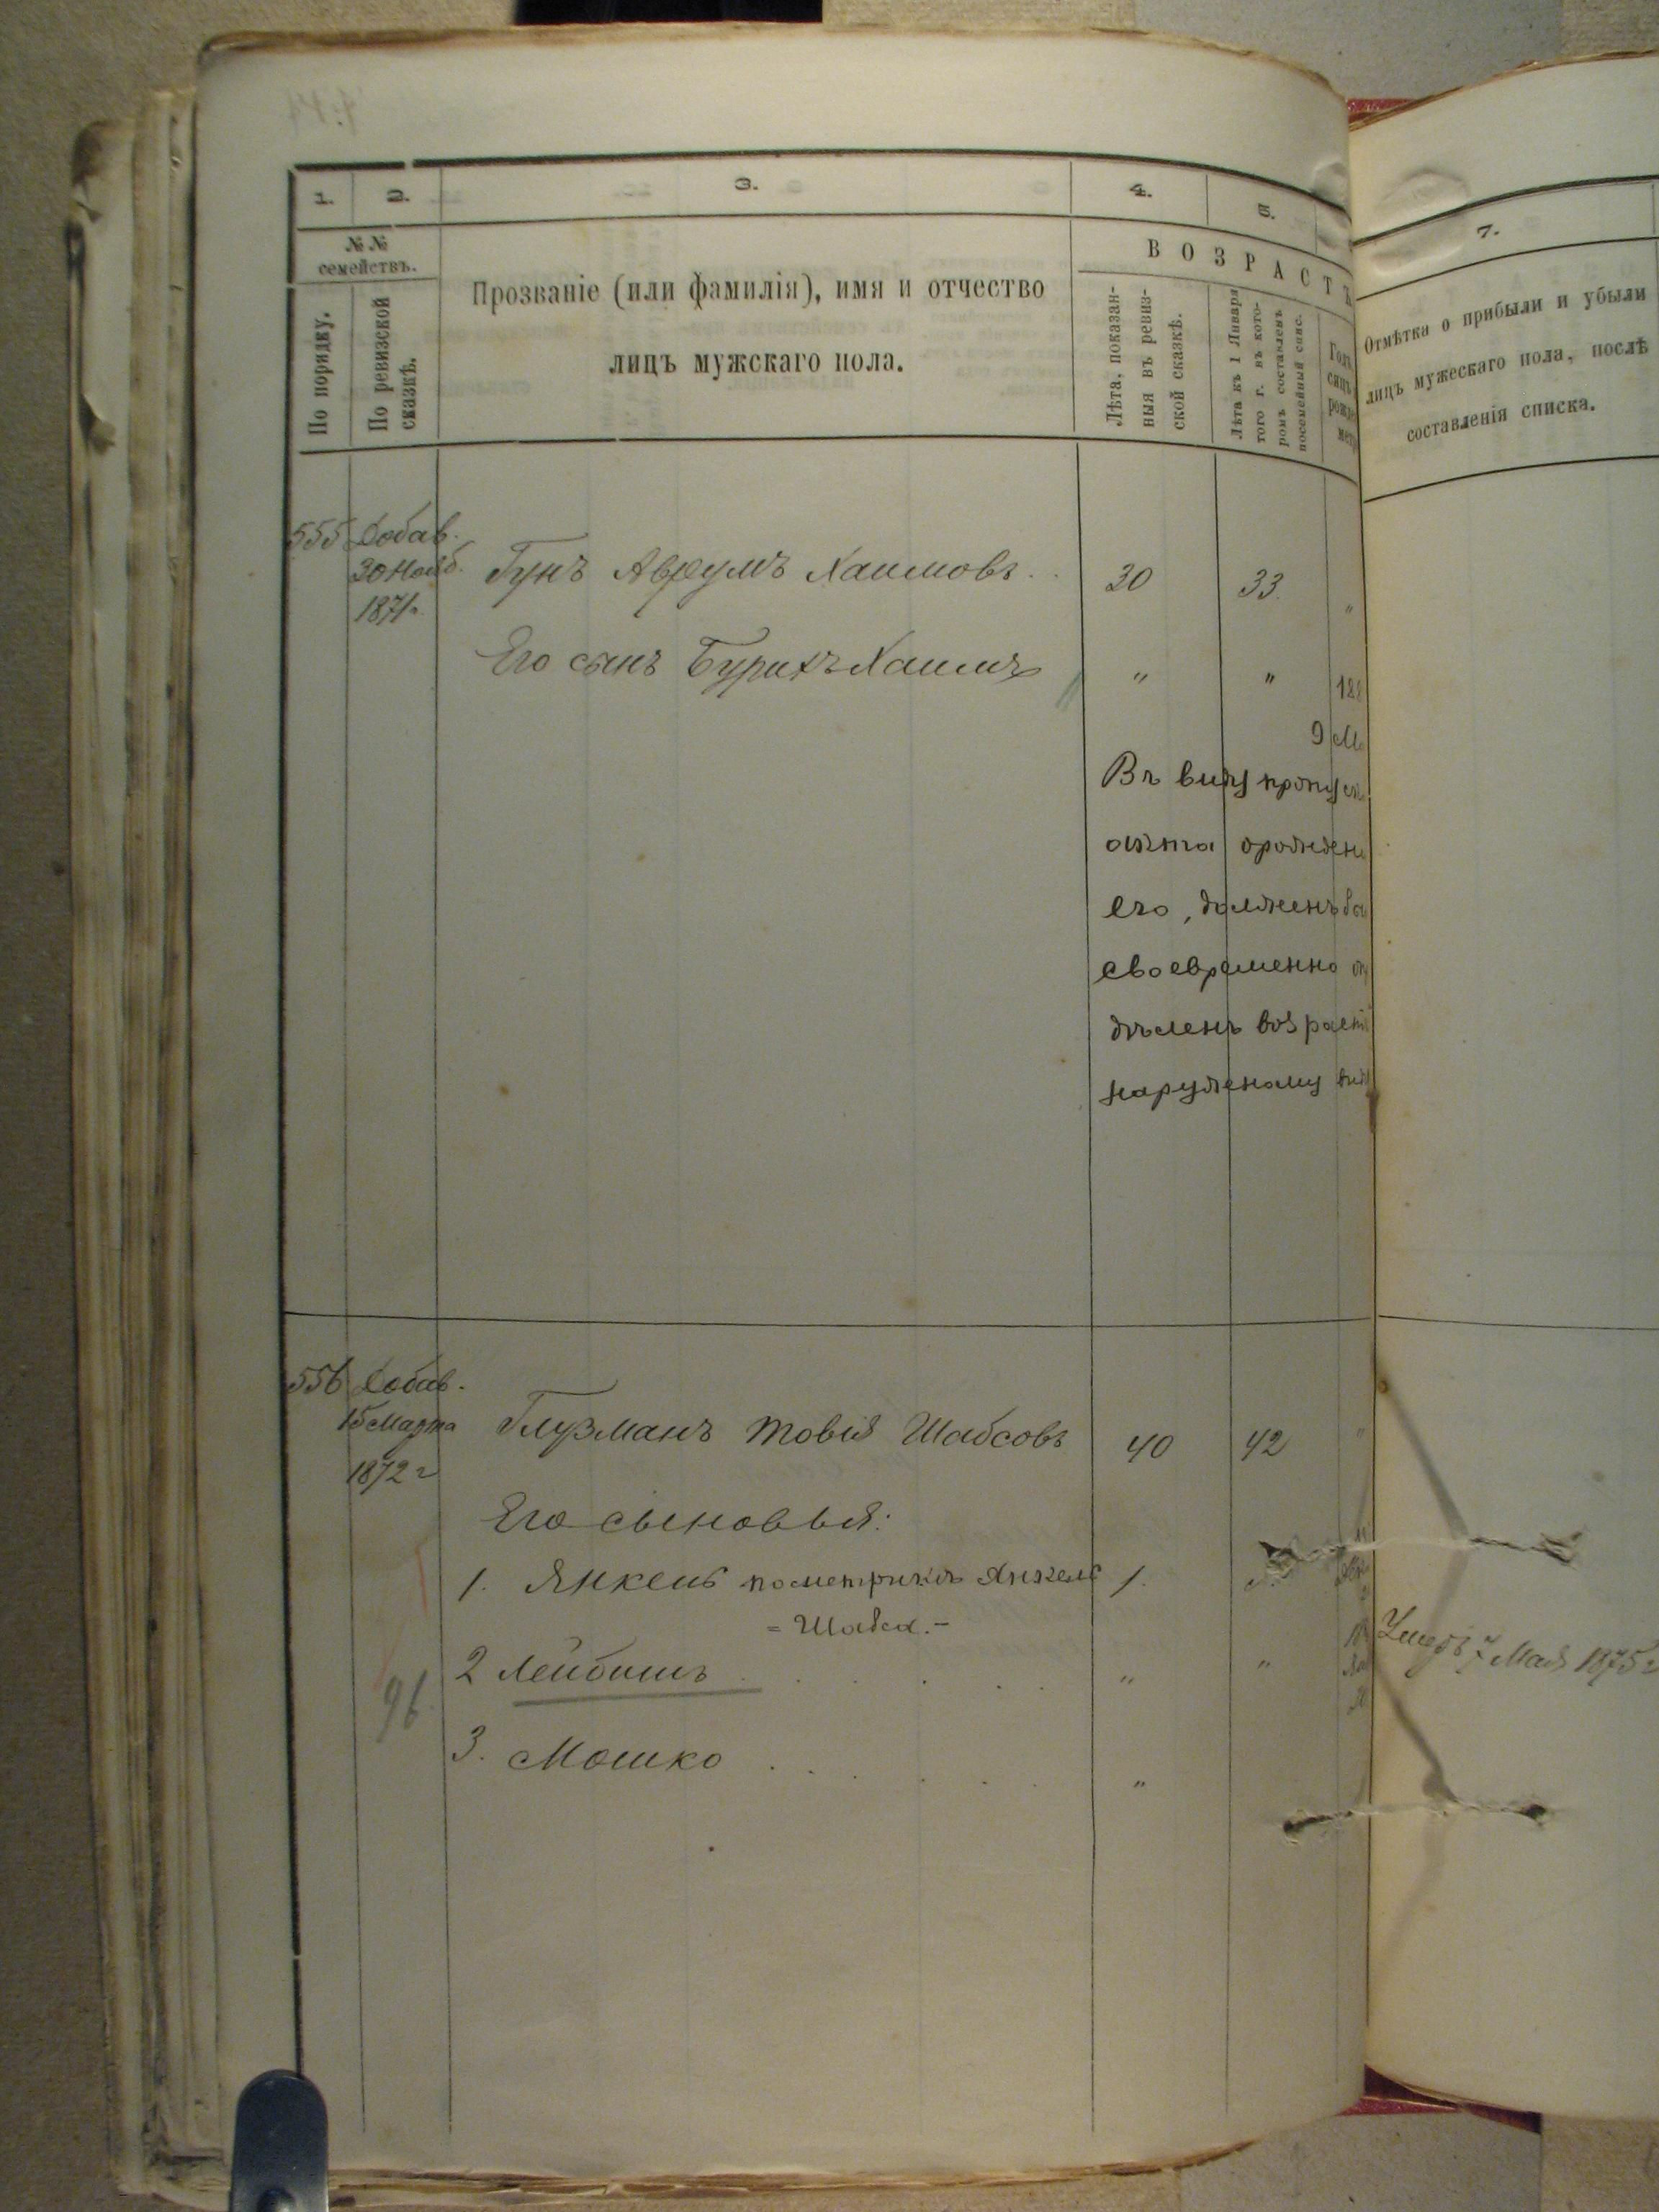 1.
2.
3.
4.
5.
7.
№ №
семействъ.
По порядку.
По ревизской
сказкѣ.
Прозваніе (или фамилія), имя и отчество
лицъ мужскаго пола.
ВОЗРАСТЪ
Лѣта, показан-
ныя въ ревиз-
ской сказкѣ.
Лѣта къ 1 Января
того г. въ кото-
ромъ составленъ
посемейный спис.
Отмѣтка о прибыли и убыли
лицъ мужескаго пола, послѣ
составленія списка.
555 Добав.
30 Нояб.
1871 г.
Гунъ Аврумъ Хаимовъ 30 33 "
Его сынъ Бурихъ Хаимъ " " 188
9
Въ виду
акта
его, долженъ
своевременно
дѣленъ
наружному
556 Добав.
15 Марта
1872 г
Глузманъ Товія Шабсовъ 40 42 "
Его сыновья:
1. Янкель по метрикѣ Янкель 1.
= Шабса. -
2 Лейбишъ " "
Умеръ 7 Мая 1875 г
96
3. Мошко "